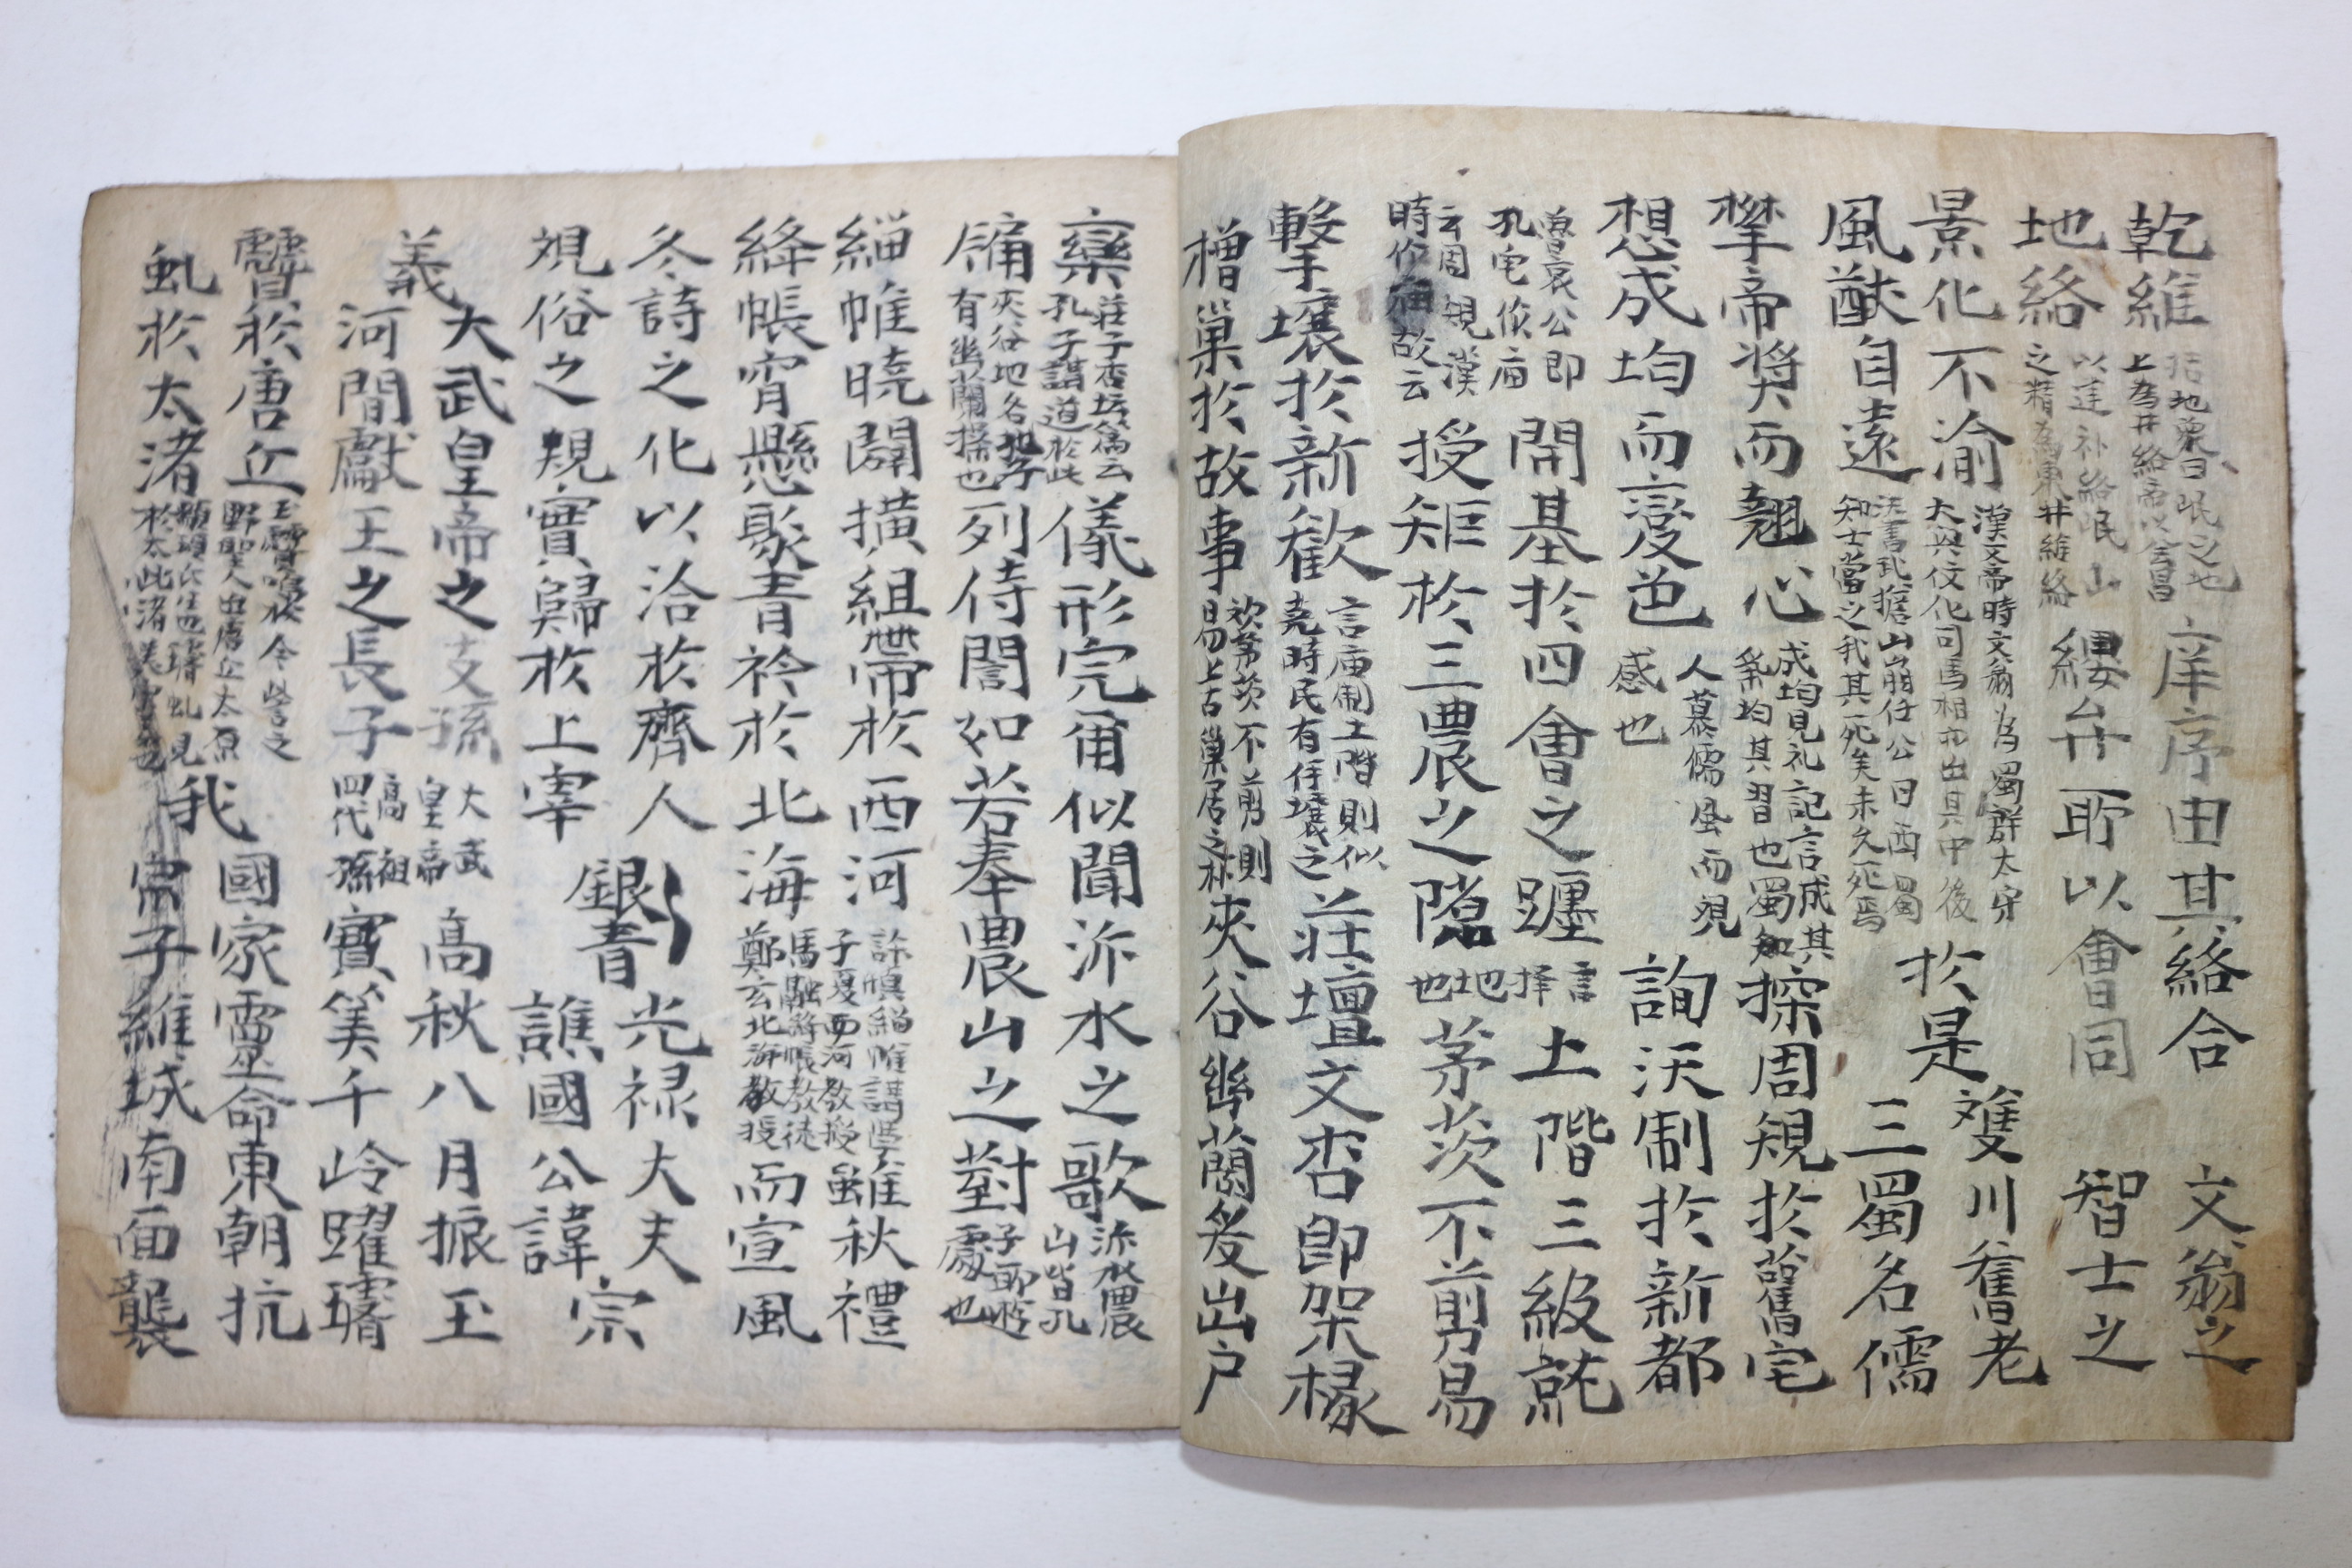 乾維
括地象曰岷之地
上為井絡帝以會昌
庠序由其絡合 文翁之
地絡
以建补絡岷山
之精為東井維絡
纓弁所以會同 智士之
景化不渝
漢文帝時文翁為蜀群太守
大興伩化司馬相如出其中後
於是 雙川舊老
風猷自遠
漢書武擔山崩任公曰西蜀
知士當之我其死矣未久死焉
三蜀名儒
攀帝獎而翹心
成均見礼記言成其
業均其習也蜀知
探周規於舊宅
想成均而變色
人慕儒風而視
感也
詢沃制於新都
魯哀公即
孔宅伩庙
開基於四會之躔
言
擇
土階三級就
云周規漢
時作庙故云
授矩於三農之隙
地
也
茅茨不剪易
擊壤於新歡
言庙制土階則似
堯時民有仟壤之
莊壇文杏即架椽
橧巢於故事
欢茅茨不剪則
易上古巢居之林
夾谷幽蘭爰出戶
欒
莊子杏坛篇云
孔子講道於此
儀形完爾似聞沂水之歌
沂水農
山皆孔
牗
夾谷地名孔子
有幽蘭操也
列侍誾如若奉農山之對
子所遊
處也
緇帷曉闢橫組帶於西河
許慎緇帷講學
子夏西河教授
雖秋禮
絳帳宵懸聚青衿於北海
馬融絳帳教徒
鄭玄北海教授
而宣風
冬詩之化以洽於齊人
視俗之規實歸於上宰
銀青光禄大夫
譙國公諱宗
義 大武皇帝之支孫
河間獻王之長子
大武
皇帝
高祖
四代孫
高秋八月振玉
寶筭千岭躍璿
讋於唐丘
虬於太渚
玉讋鳴於
野聖人出唐丘太原
顓頊氏
於太此渚
我
國家靈命東朝抗
宗子維城南面襲